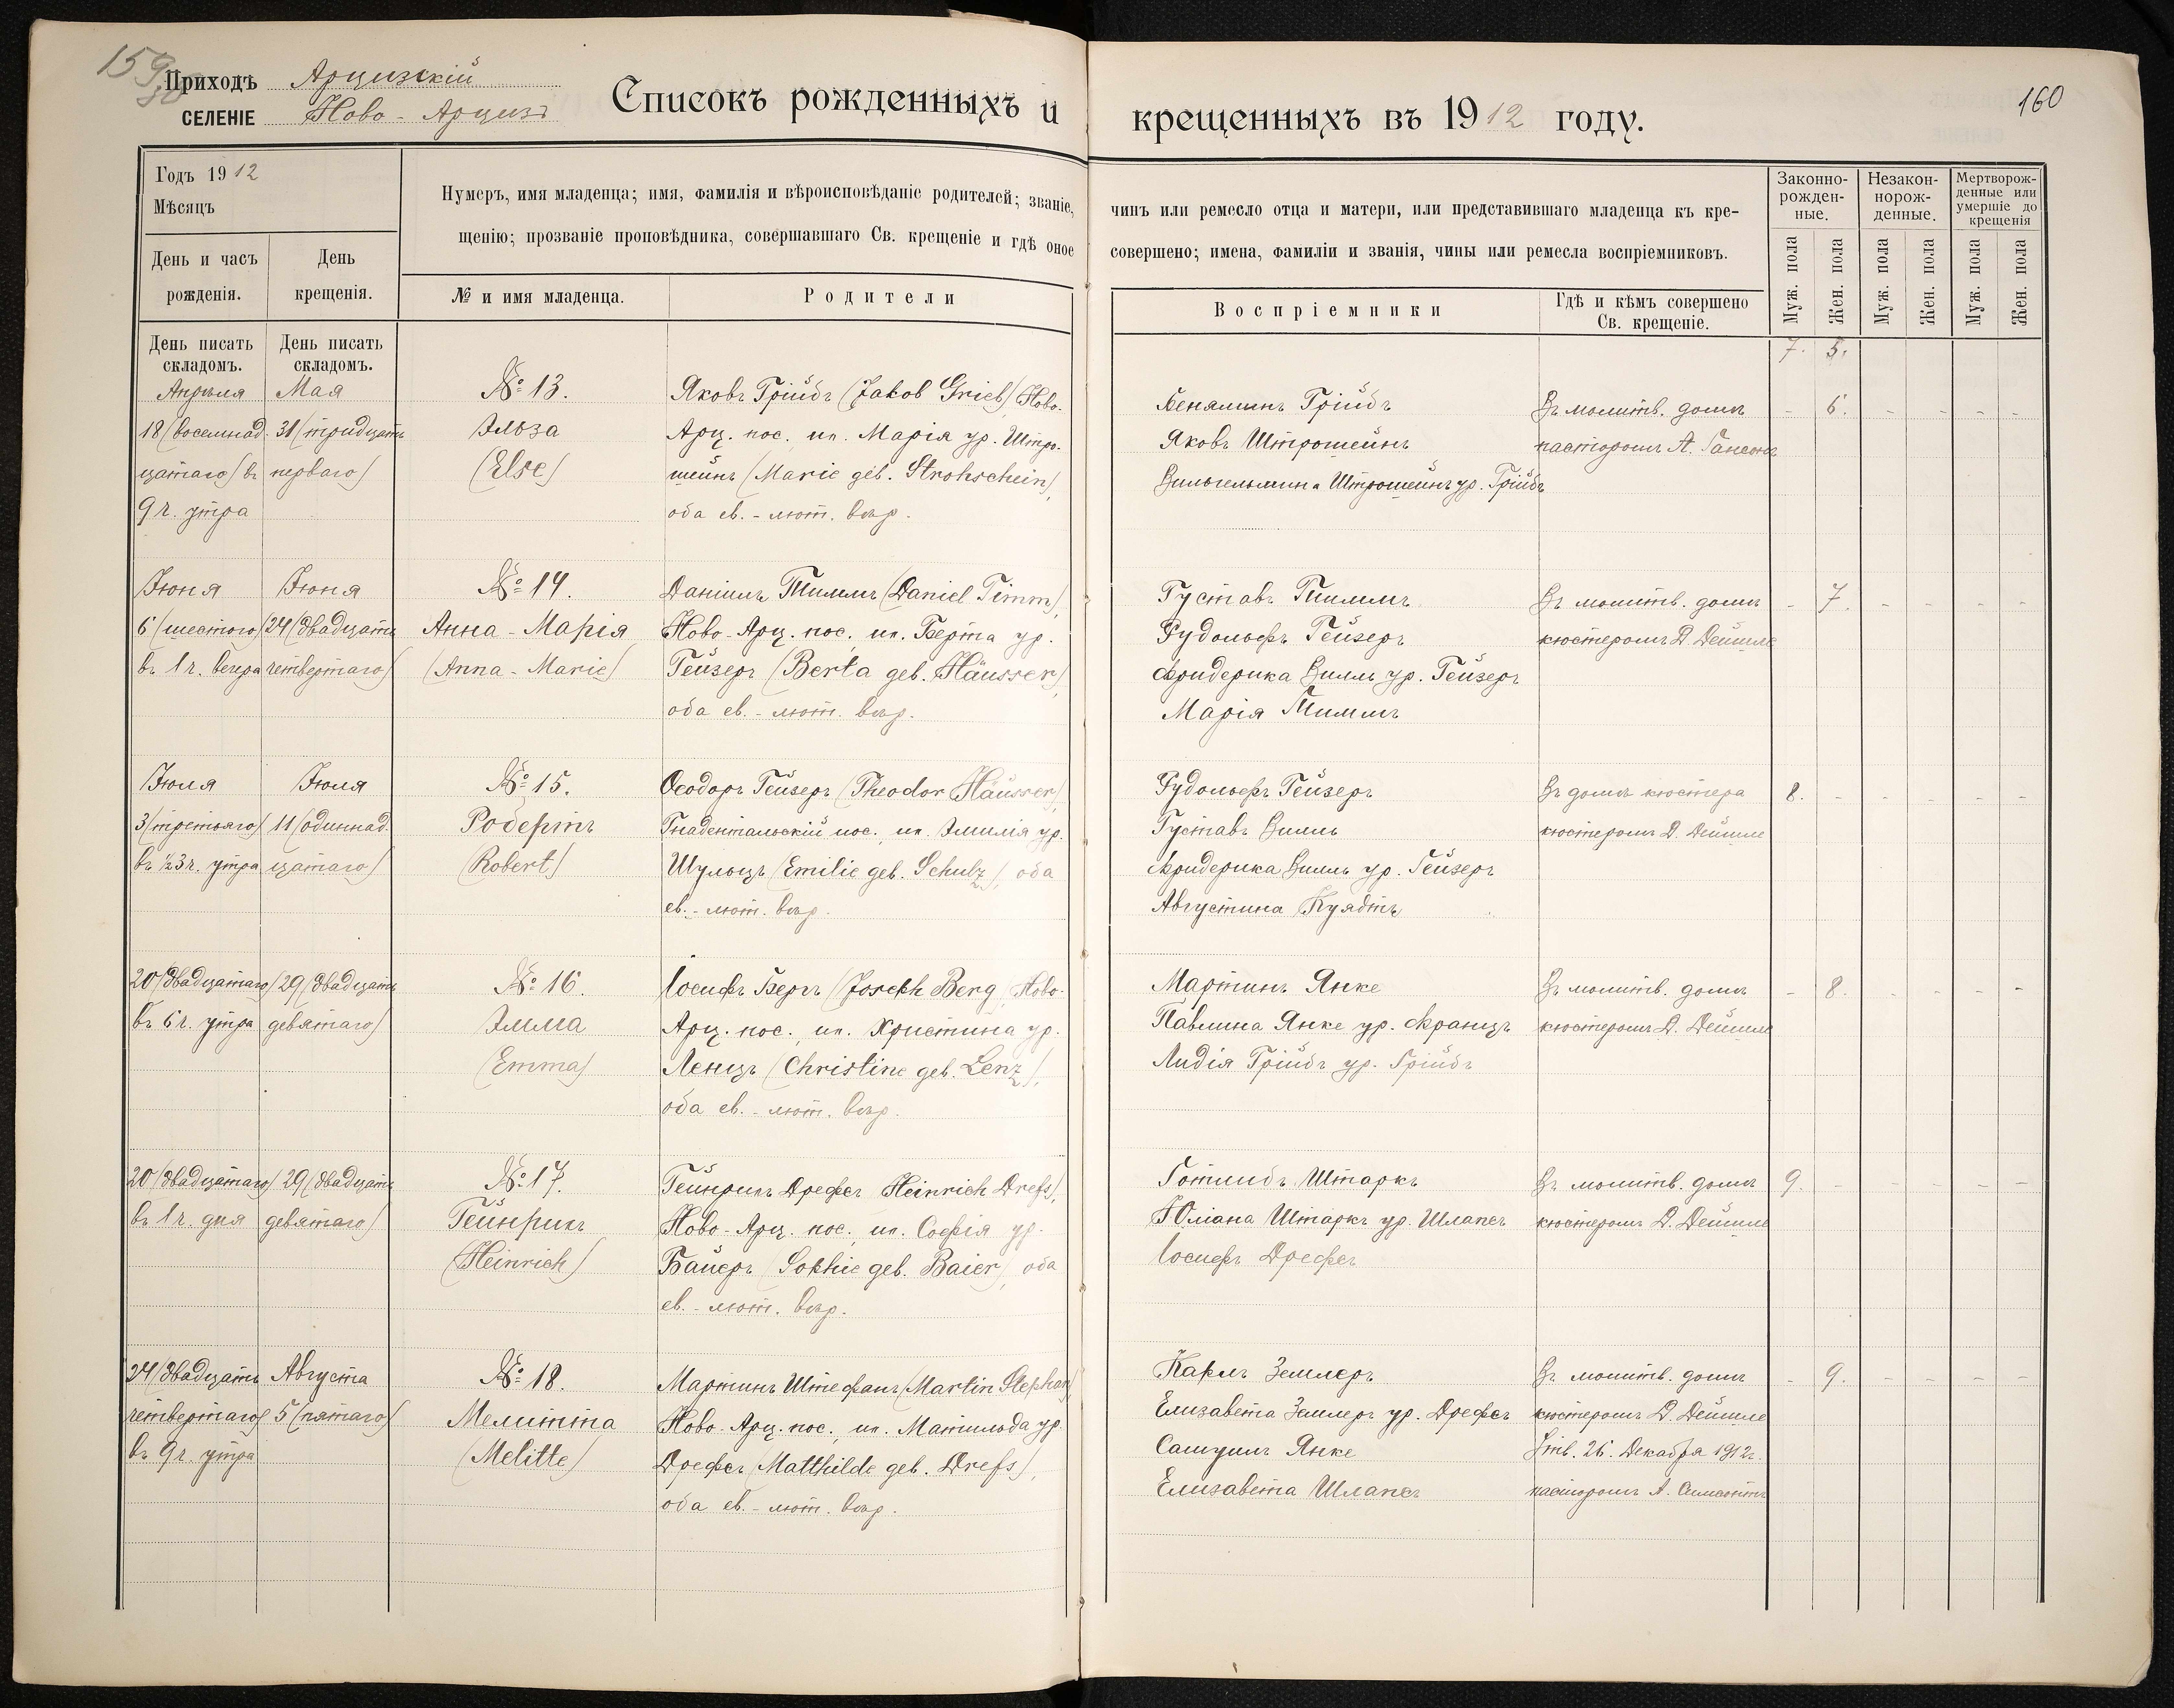 159
160
Приходъ Арцизскій
СЕЛЕНІЕ Ново-Арцизъ
Списокъ рожденныхъ и крещенныхъ въ 1912 году.
Годъ 1912
Мѣсяцъ
День и часъ рожденія.
День крещенія.
День писать складомъ.
День писать складомъ.
Нумеръ, имя младенца; имя, фамилія и вѣроисповѣданіе родителей; званіе, чинъ или ремесло отца и матери, или представившаго младенца къ кре-
щенію; прозваніе проповѣдника, совершавшаго Св. крещеніе и гдѣ оное совершено; имена, фамиліи и званія, чины или ремесла воспріемниковъ.
№ и имя младенца.
Родители
Воспріемники
Гдѣ и кѣмъ совершено Св. крещеніе.
Законно-рожден-ные.
Незакон-норож-денные.
Мертворож-денные или умершіе до крещенія
Муж. пола
Жен. пола
Муж. пола
Жен. пола
Муж. пола
Жен. пола
7. 5.
Апрѣля
18 (восемнад
цатаго) въ
9 ч. утра
Мая
31 (тридцать
перваго)
№ 13.
Эльза
(Else)
Яковъ Грійбъ (Jakob Grieb) Ново-
Арц. пос. ип. Марія ур. Штро-
шейнъ (Marie geb. Strohschein),
оба ев.-лют. вѣр.
Беняминъ Грійбъ
Яковъ Штрошейнъ
Вильгельмина Штрошейнъ ур. Грійбъ
Въ молитв. домѣ
пасторомъ А. Гансонъ
- 6. - - - -
Іюня
6 (шестого)
въ 1 ч. вечера
Іюня
24 (двадцать
четвертаго)
№ 14.
Анна-Марія
(Anna-Marie)
Даніилъ Тиммъ (Daniel Timm),
Ново-Арц. пос., ип. Берта ур.
Гейзеръ (Berta geb. Häusser),
оба ев.-лют. вѣр.
Густавъ Тиммъ
Рудольфъ Гейзеръ
Фридерика Вилль ур. Гейзеръ
Марія Тиммъ
Въ молитв. домѣ
кюстеромъ Д. Дейшле
- 7. - - - -
Іюля
3 (третьяго)
въ ½3 ч. утра
Іюля
11 (одиннад
цатаго)
№ 15.
Робертъ
(Robert)
Ѳеодоръ Гейзеръ (Theodor Häusser),
Гнадентальскій пос., ип. Эмилія ур.
Шульцъ (Emilie geb. Schulz), оба
ев.-лют. вѣр.
Рудольфъ Гейзеръ
Густавъ Вилль
Фридерика Вилль ур. Гейзеръ
Августина Куядтъ
Въ домѣ кюстера
кюстеромъ Д. Дейшле
8. - - - - -
20 (двадцатаго)
въ 6 ч. утра
29 (двадцать
девятаго)
№ 16.
Эмма
(Emma)
Іосифъ Бергъ (Joseph Berg) Ново-
Арц. пос., ип. Христина ур.
Ленцъ (Christine geb. Lenz),
оба ев.-лют. вѣр.
Мартинъ Янке
Павлина Янке ур. Францъ
Лидія Грійбъ ур. Грійбъ
Въ молитв. домѣ
кюстеромъ Д. Дейшле
- 8. - - - -
20 (двадцатаго)
въ 1 ч. дня
29 (двадцать
девятаго)
№ 17.
Гейнрихъ
(Heinrich)
Гейнрихъ Дрефсъ Heinrich Drefs),
Ново-Арц. пос., ип. Софія ур.
Байеръ (Sophie geb. Baier), оба
ев.-лют. вѣр.
Готлибъ Штаркъ
Юліана Штаркъ ур. Шлапсъ
Іосифъ Дрефсъ
Въ молитв. домѣ
кюстеромъ Д. Дейшле
9. - - - - -
24 (двадцать
четвертаго)
въ 9 ч. утра
Августа
5 (пятаго)
№ 18.
Мелитта
(Melitte)
Мартинъ Штефанъ (Martin Stephan)
Ново-Арц. пос., ип. Матильда ур.
Дрефсъ (Matthilde geb. Drefs),
оба ев.-лют. вѣр.
Карлъ Земмеръ
Елизавета Земмеръ ур. Дрефсъ
Самуилъ Янке
Елизавета Шлапсъ
Въ молитв. домѣ
кюстеромъ Д. Дейшле
Утв. 26. Декабря 1912 г.
пасторомъ А.
- 9. - - - -